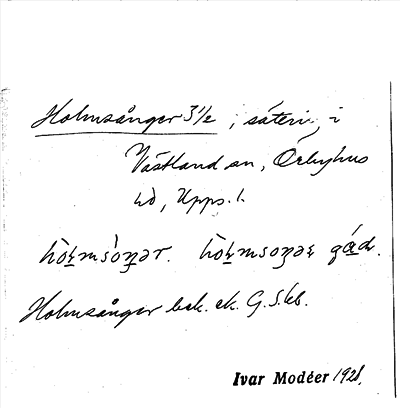 Holmsånger 3 1/2, säteri, i
Västland sn, Örbyhus
hd, Upps. l.
hòḷmsòŋər. hòḷmsoŋəṣ gá̱ḍ.
Holmsånger bek. ek. G. S. kb.
Ivar Modéer 1928.